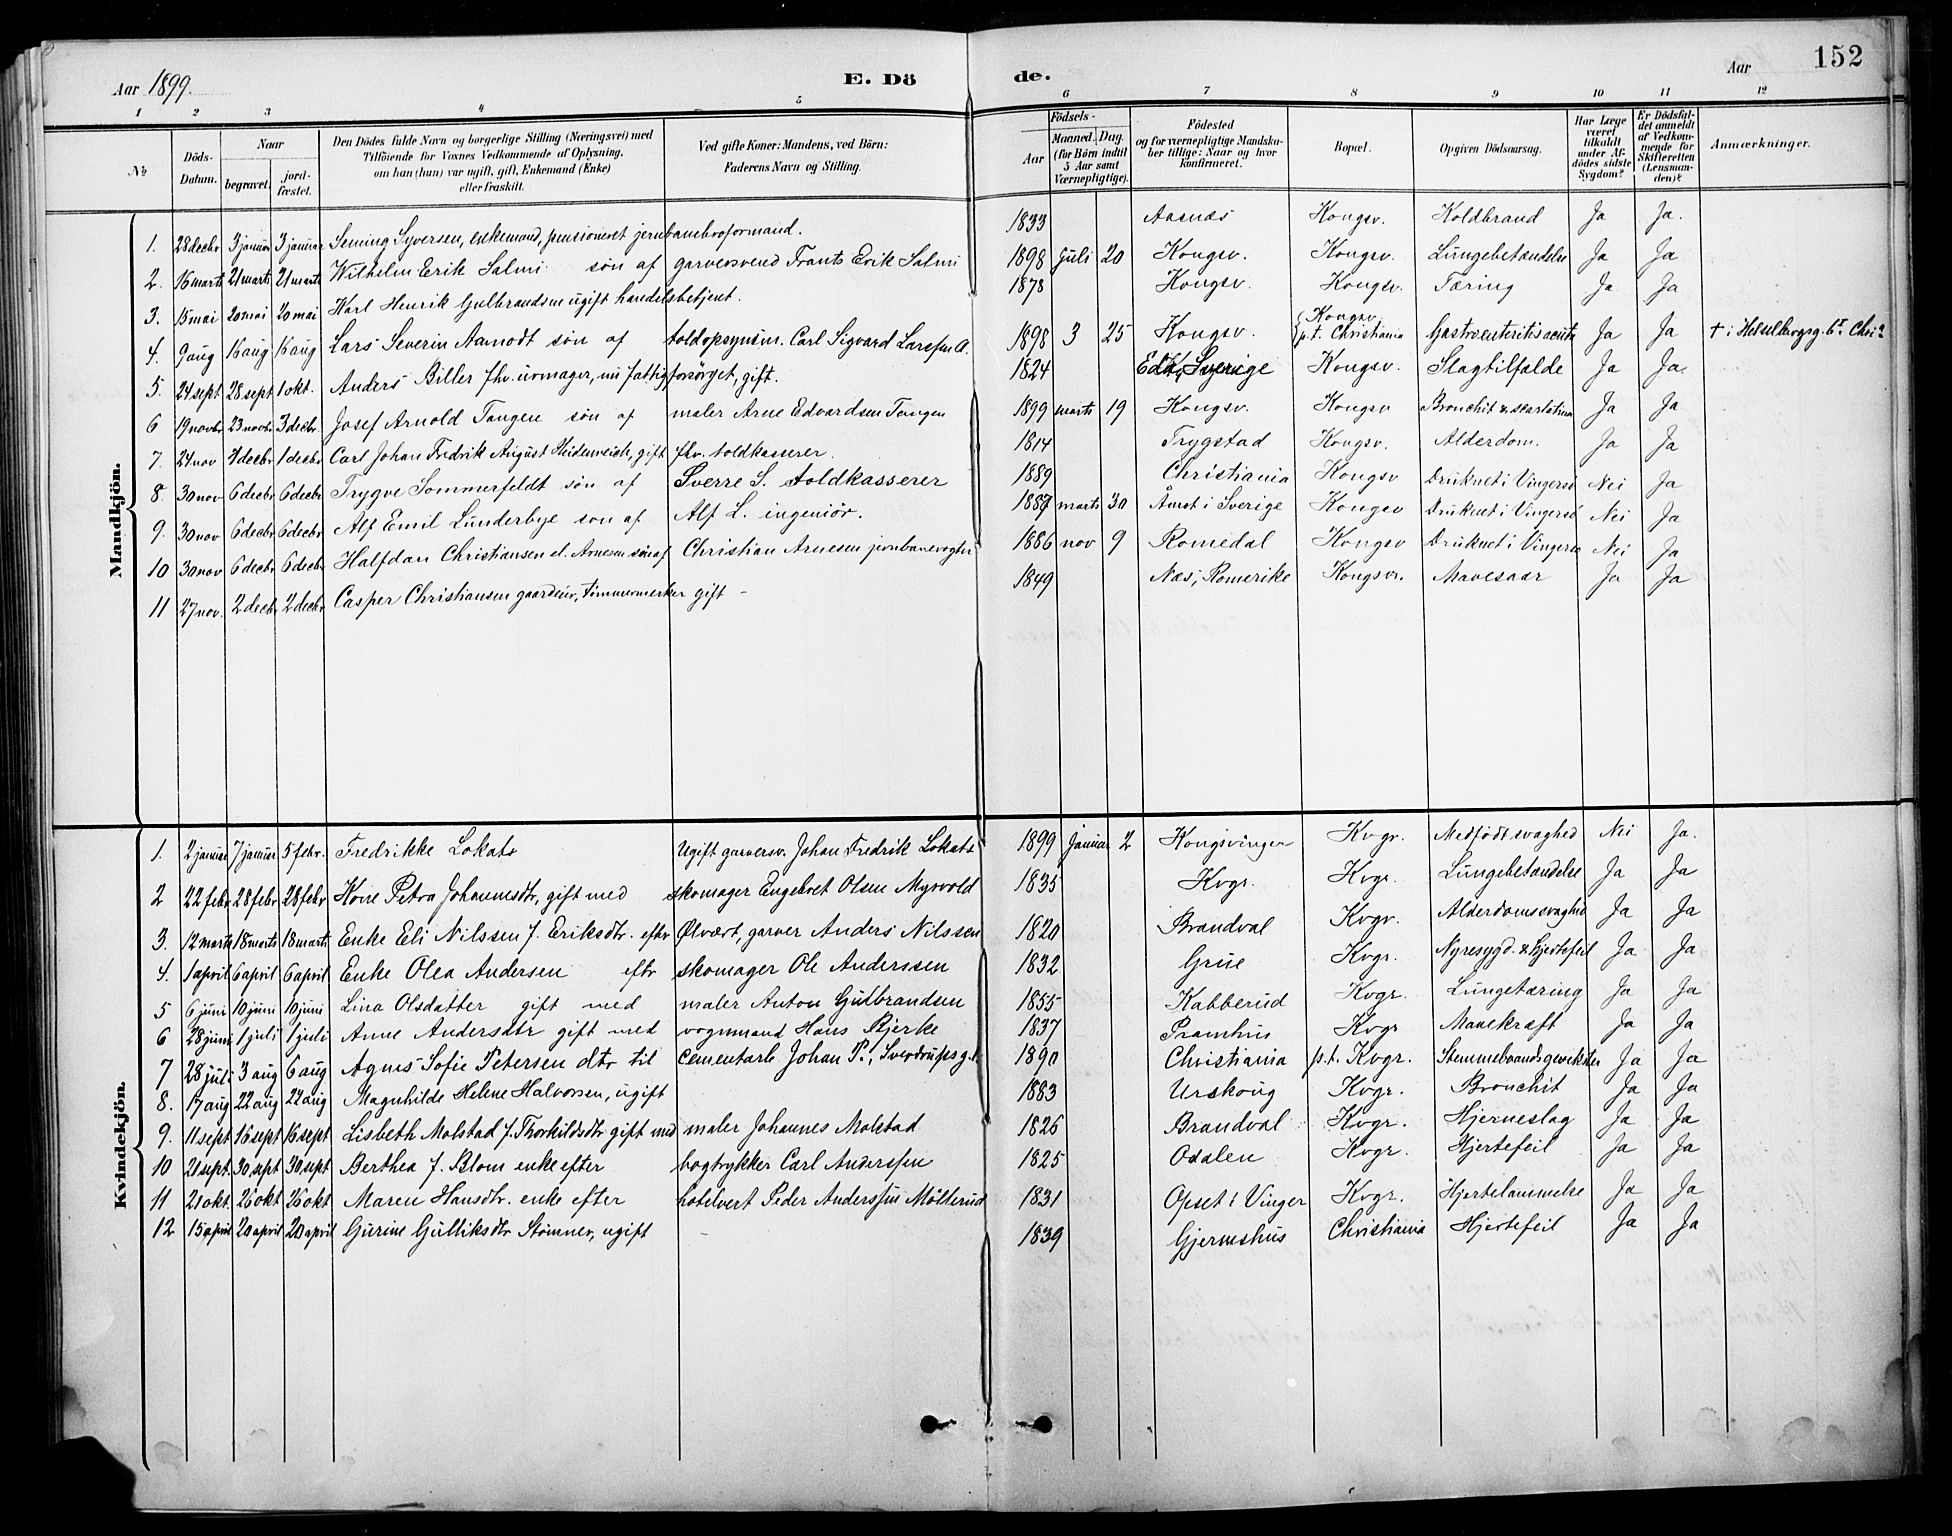 152
Aar 1899. E. Dö de. Aar
1 2 3 4 5 6 7 8 9 10 11 12
№
Döds-Datum.
Naar
begravet.
jord-fæstet.
Den Dödes fulde Navn og borgerlige Stilling (Næringsvei) med
Tilföiende for Voxnes Vedkommende af Oplysning,
om han (hun) var ugift, gift, Enkemand (Enke)
eller fraskilt.
Ved gifte Koner: Mandens, ved Börn:
Faderens Navn og Stilling.
Födsels-
Aar
Maaned. Dag.
(for Börn indtil
5 Aar samt
Værnepligtige).
Födested
og for værnepligtige Mandsku-
ber tillige: Naar og hvor
konfirmeret.
Bopæl.
Opgiven Dödsaarsag.
Har Læge
været
tilkaldt
under Af-
dödes sidste
Sygdom?
Er Dödsfal-
det anmeldt
af Vedkom-
mende for
Skifteretten
(Lensman-
den)?
Anmærkninger.
Mandkjön.
1. 28 decbr 3 januar 3 januar Seming Syversen, enkemand, pensioneret jernbanebroformand. 1833 Aasnæs Kongsv. Koldbrand Ja Ja.
2. 16 marts 21 marts 21 marts Wilhelm Erik Salmi søn af garversvend Frants Erik Salmi 1898 juli 20 Kongsv. Kongsv. Lungebetændelse Ja Ja
3. 15 mai 20 mai 20 mai Karl Henrik Gulbrandsen ugift handelsbetjent. 1878 Kongsv. Kongsv. Tæring Ja Ja
4. 9 aug 16 aug 16 aug Lars Severin Aamodt søn af toldopsynsm. Carl Sigvard Larssen A. 1898 3 25 Kongsv. Kongsv. p.t. Christiania Gastroenteritis acuta Ja Ja † i Helselbergsg. 6 Chr.a
5. 24 sept 28 sept 1 okt. Anders Biller fhv. urmager, nu fattigforsørget, gift. 1824 Eda, Sverige Kongsv. Slagtilfælde Ja Ja.
6 19 novbr 23 novbr 3 decbr. Josef Arnold Tangen søn af maler Arne Edvardsen Tangen 1899 marts 19 Kongsv. Kongsv Bronchit & scarlatina Ja Ja
7. 24 nov 1 decbr 1 decbr Carl Johan Fredrik August Heidenreich, gift fhv. toldkasserer. 1814 Trygstad Kongsv. Alderdom. Ja Ja
8. 30 nov 6 decbr 6 decbr Trygve Sommerfeldt søn af Sverre S. toldkasserer 1889 Christiania Kongsv Druknet i Vingersø Nei Ja
9. 30 nov 6 decbr 6 decbr Alf Emil Lunderbye søn af Alf L. ingeniør. 1887 marts 30 Åmot i Sverige Kongsv Druknet i Vingersø Nei Ja
10 30 nov 6 decbr 6 decbr Halfdan Christiansen el. Arnesen søn af Christian Arnesen jernbanevogter 1886 nov 9 Romedal Kongsv Druknet i Vingersø Nei Ja
11 27 nov. 2 decbr 2 decbr Casper Christiansen gaardeier, tømmermerker gift – 1849 Næs, Romerike Kongsv. Mavesaar Ja Ja
Kvindekjön.
1. 2 januar 7 januar 5 febr. Fredrikke Lokats Ugift garversv. Johan Fredrik Lokats 1899 Januar 2 Kongsvinger Kvgr. Medfødt svaghed Nei Ja.
2 22 febr 28 febr 28 febr Kone Petra Johannesdtr, gift med skomager Engebret Olsen Myrvold 1835 Kvgr. Kvgr. Lungebetændelse Ja Ja
3. 12 marts 18 marts 18 marts Enke Eli Nilssen f. Eriksdtr. efter Ølvært, garver Anders Nilssen 1820 Brandval Kvgr. Alderdomssvaghed Ja Ja
4. 1 april 6 april 6 april Enke Olea Andersen eftr skomager Ole Anderssen 1832 Grue Kvgr. Nyresygd. & Hjertefeil Ja Ja
5 6 juni 10 juni 10 juni Lina Olsdatter gift med maler Anton Gulbrandsen 1855 Kabberud Kvgr. Lungetæring Ja Ja
6 28 juni 1 juli 1 juli Anne Andersdtr gift med vognmand Hans Bjerke 1837 Pramhus Kvgr Mavekræft Ja Ja
7 28 juli 3 aug 6 aug Agnes Sofie Petersen dtr til cementarb. Johan P., Sverdrupsg. 1890 Christiania p.t. Kvgr. Stemmebaandsgevekster Ja Ja
8. 17 aug 22 aug 22 aug Magnhilde Helene Halvorsen, ugift 1883 Urskoug Kvgr. Bronchit Ja Ja
9. 11 sept 16 sept 16 sept Lisbeth Molstad f. Thorkildsdtr gift med maler Johannes Molstad 1826 Brandval Kvgr. Hjerneslag Ja Ja
10 21 sept. 30 sept 30 sept Berthea f. Blom enke efter bogtrykker Carl Anderssen 1825 Odalen Kvgr. Hjertefeil Ja Ja
11 21 okt. 26 okt 26 okt Maren Hansdtr. enke efter hotelvert Peder Anderssen Mölterud 1831 Opset i Vinger Kvgr. Hjertelammelse Ja Ja
12 15 april 20 april 20 april Gurine Gulliksdtr Stømner, ugift – 1839 Gjerneshus Christiania Hjertefeil Ja Ja